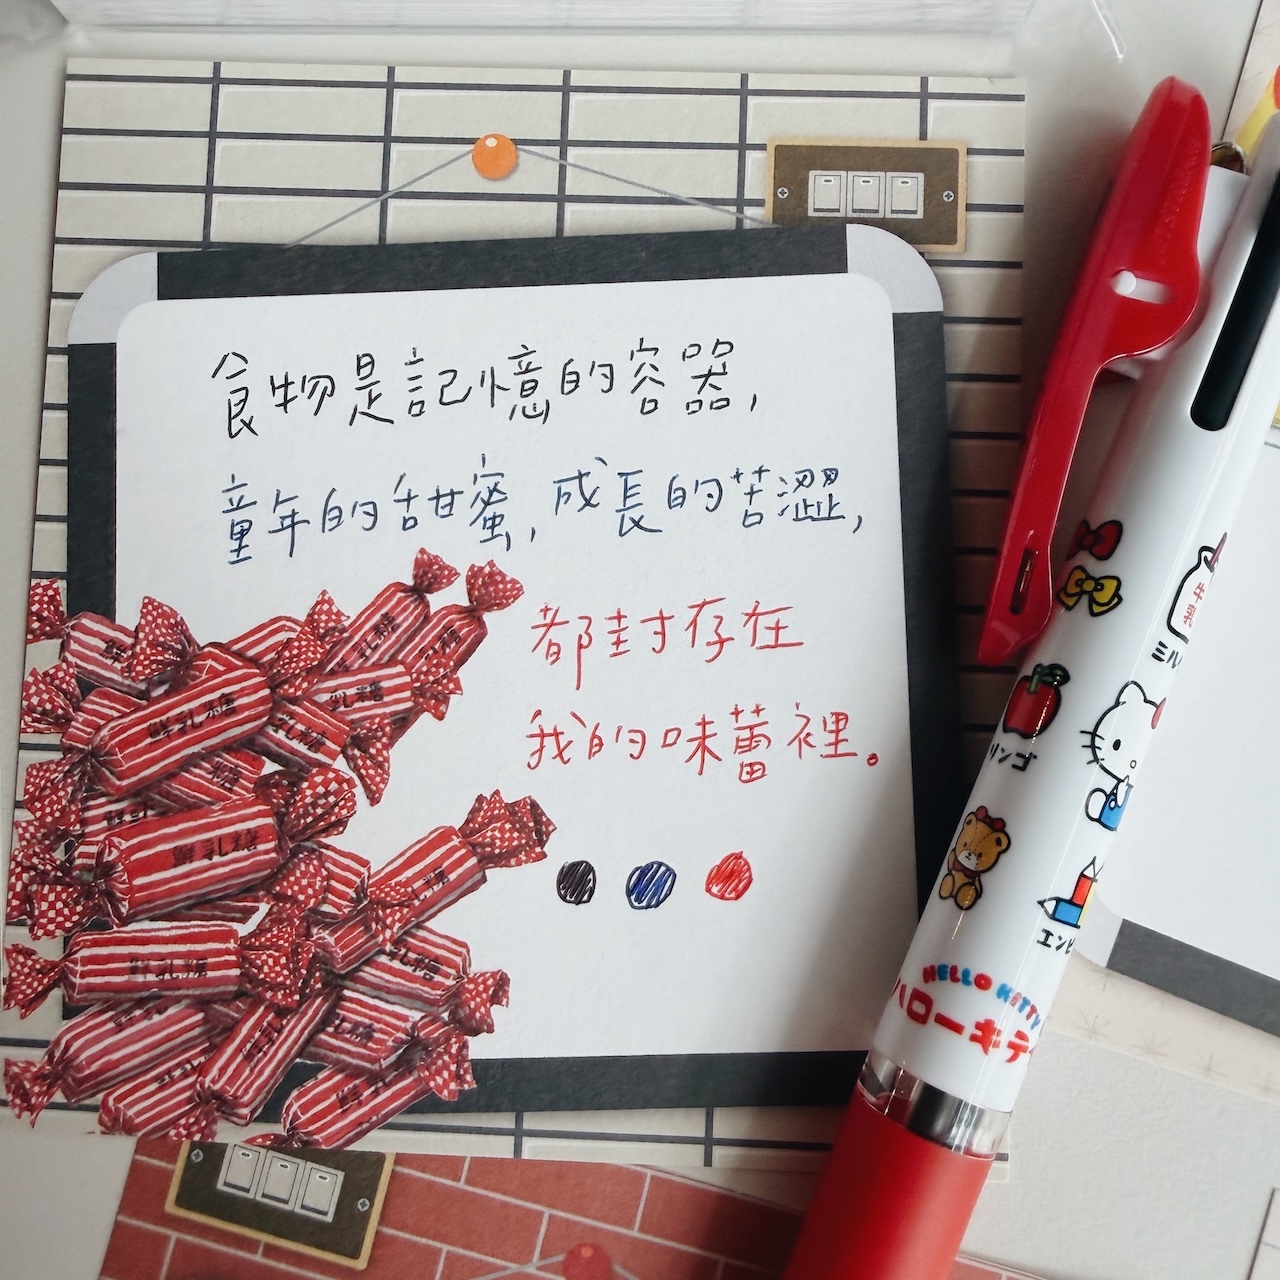 食物是記憶的容器,
童年的甜蜜,成長的苦澀,
都封存在
我的味蕾裡。
鮮乳糖
乳糖
鮮乳糖
鮮乳糖
鮮乳糖
牛乳
ミル
リンゴ
エンピ
HELLO KITTY
ハローキティ